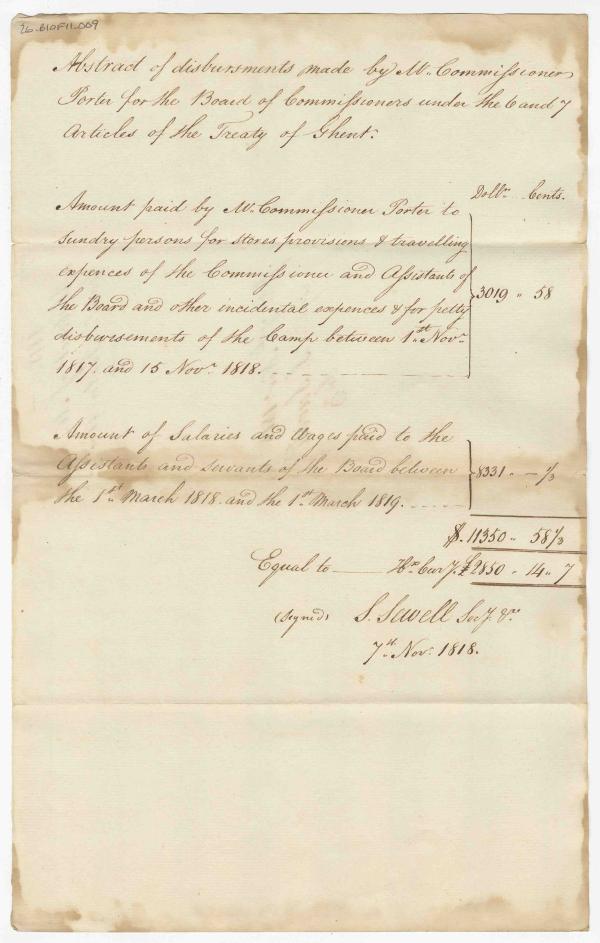 26-B10F11.009
Abstract of disbursments made by Mr. Commissioner
Porter for the Board of Commissioners under the 6 and 7
Articles of the Treaty of Ghent.
Dollrs Cents.
Amount paid by Mr. Commissioner Porter to
Sundry persons for stores, provisions & travelling
expences of the Commissioner and Assistants of
the Board and other incidental expences & for petty
disbursements of the Camp between 1st Novr
1817. and 15 Novr 1818. 3019 " 58
Amount of Salaries and Wages paid to the
Assistants and servants of the Board between
the 1st March 1818. and the 1st March 1819. 8331 " — " ⅓
$. 11350 " 58⅓
Equal to — Curry. £2850 " 14 " 7
(Signed) S. Sewell Secy. &c
7th Novr. 1818.